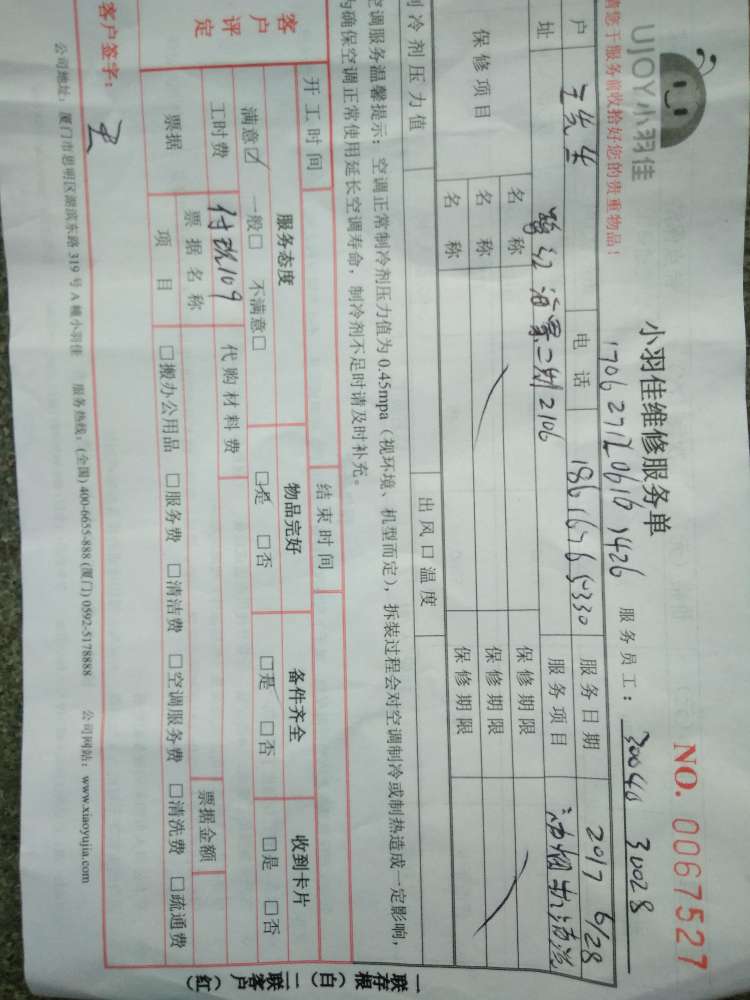 UJOY小羽佳
小羽佳维修服务单
NO. 0067527
请您于服务前收拾好您的贵重物品!
服务员工: 30040 31028
户
电话
服务日期 2017 6/28
址
2106
服务项目 油烟机清洗
保修项目
名称
保修期限
名称
保修期限
名称
保修期限
制冷剂压力值
出风口温度
空调服务温馨提示:空调正常制冷剂压力值为0.45mpa(视环境、机型而定),拆装过程会对空调制冷或制热造成一定影响,
为确保空调正常使用延长空调寿命,制冷剂不足时请及时补充。
开工时间
结束时间
客户评定
服务态度
物品完好
备件齐全
收到卡片
满意☑ 一般□ 不满意□
☑是 □否
□是 □否
□是 □否
工时费 付现109
代购材料费
票据
票据名称
票据金额
项目
□搬办公用品 □服务费 □清洁费 □空调服务费 □清洗费 □疏通费
客户签字:
公司地址:厦门市思明区湖滨东路319号A幢小羽佳 服务热线:(全国)400-6655-888 (厦门)0592-5178888 公司网站:www.xiaoyujia.com
一联存根(白) 二联客户(红)